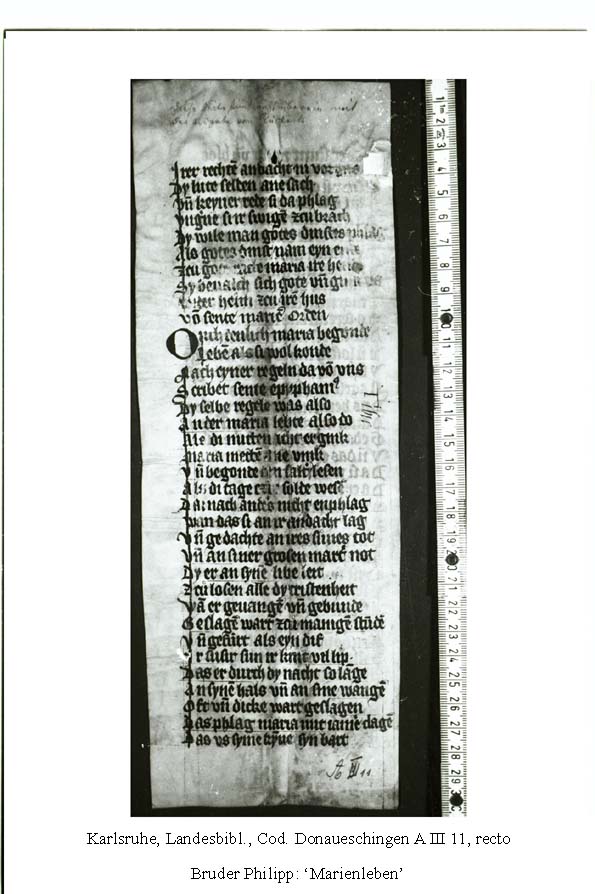 Irer rechtē andacht in vor
Dy lute selden ane sach
Vn̄ keyner rede si da phlag
Vugue si ir swigē zcu brach
Dy wile man gotes dinstes
Als gotes dinst nam eyn
zcu maria ire
sich gote vn̄
heim zcu irē hus
vō sente mariē orden
Ordenlich maria begonde
Lebē als si wol konde
Nach eyner regeln da vō vns
Scribet sente epyphani9
Dy selbe regele was also
An der maria lebte also do
Als di mitten nicht ergink
maria mettē ane vink
Vn̄ begonde salt lesen
Als di tage solde wesē
Dar nach andes nicht enphlag
wan das si an ir andacht lag
Vn̄ gedachte an ires sunes tot
Vn̄ an siner grosen mart not
Dy er an synē libe leit
zcu losen alle dy cristenheit
Vā er geuangē vn̄ gebunde
Geslagē wart zcu manigē stūdē
Vn̄ gefurt als eyn dif
Ir susir sun ir kint vil lip
Das er durch dy nacht so lāge
An synē hals vn̄ an sine wangē
Oft vn̄ dicke wart geslagen
Das phlag maria mit iamē clagē
Das vs syme kȳne syn bart
A III 11
1 2 3 4 5 6 7 8 9 10 11 12 13 14 15 16 17 18 19 20 21 22 23 24 25 26 27 28 29
Karlsruhe, Landesbibl., Cod. Donaueschingen A III 11, recto
Bruder Philipp: ‘Marienleben’